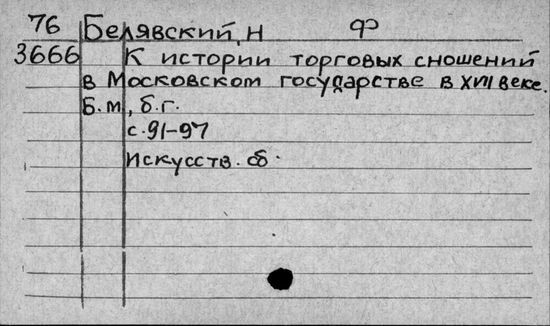 76 Белявский, Н Ф
3666 К истории торговых сношений
в Московском государстве в XVII веке.
Б.м., б.г.
с.91-97
Искусств. сб.